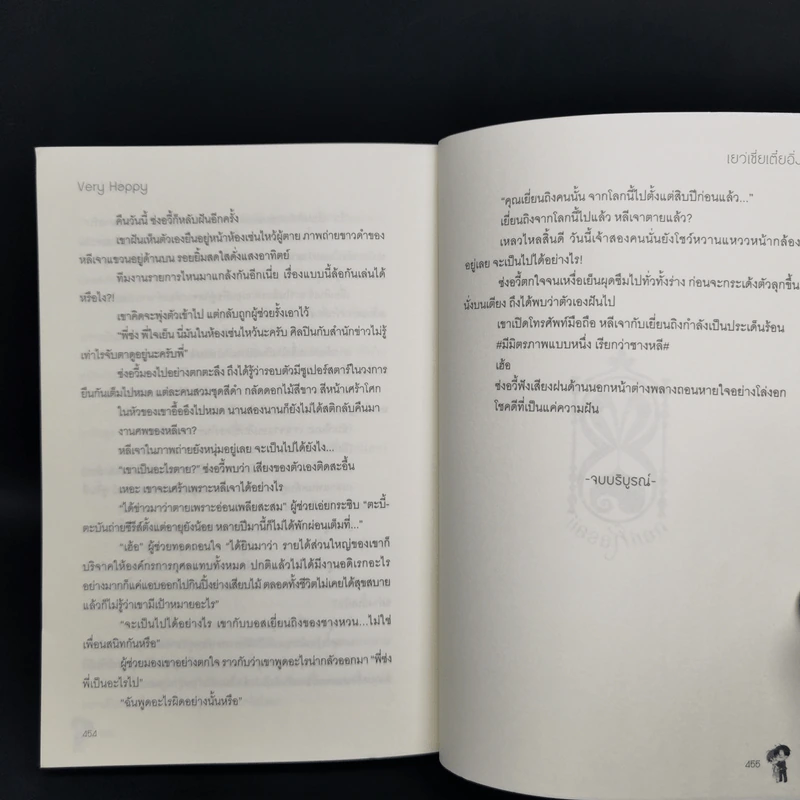 Very Happy
คืนวันนี้ ซ่งอวี้ก็หลับฝันอีกครั้ง
เขาฝันเห็นตัวเองยืนอยู่หน้าห้องเซ่นไหว้ผู้ตาย ภาพถ่ายขาวดำของ
หลีเจาแขวนอยู่ด้านบน รอยยิ้มสดใสดั่งแสงอาทิตย์
ทีมงานรายการไหนมาแกล้งกันอีกเนี่ย เรื่องแบบนี้ล้อกันเล่นได้
หรือไง?!
เขาคิดจะพุ่งตัวเข้าไป แต่กลับถูกผู้ช่วยรั้งเอาไว้
“พี่ซ่ง พี่ใจเย็น นี่มันในห้องเซ่นไหว้นะครับ ศิลปินกับสำนักข่าวไม่รู้
เท่าไรจับตาดูอยู่นะครับพี่”
ซ่งอวี้มองไปอย่างตกตะลึง ถึงได้รู้ว่ารอบตัวมีซูเปอร์สตาร์ในวงการ
ยืนกันเต็มไปหมด แต่ละคนสวมชุดสีดำ กลัดดอกไม้สีขาว สีหน้าเศร้าโศก
ในหัวของเขาอื้ออึงไปหมด นานสองนานก็ยังไม่ได้สติกลับคืนมา
งานศพของหลีเจา?
หลีเจาในภาพถ่ายยังหนุ่มอยู่เลย จะเป็นไปได้ยังไง...
“เขาเป็นอะไรตาย?” ซ่งอวี้พบว่า เสียงของตัวเองติดสะอื้น
เหอะ เขาจะเศร้าเพราะหลีเจาได้อย่างไร
“ได้ข่าวมาว่าตายเพราะอ่อนเพลียสะสม” ผู้ช่วยเอ่ยกระซิบ “ตะบี้-
ตะบันถ่ายซีรีส์ตั้งแต่อายุยังน้อย หลายปีมานี้ก็ไม่ได้พักผ่อนเต็มที่...”
“เฮ้อ” ผู้ช่วยทอดถอนใจ “ได้ยินมาว่า รายได้ส่วนใหญ่ของเขาก็
บริจาคให้องค์กรการกุศลแทบทั้งหมด ปกติแล้วไม่ได้มีงานอดิเรกอะไร
อย่างมากก็แค่แอบออกไปกินปิ้งย่างเสียบไม้ ตลอดทั้งชีวิตไม่เคยได้สุขสบาย
แล้วก็ไม่รู้ว่าเขามีเป้าหมายอะไร”
“จะเป็นไปได้อย่างไร เขากับบอสเยี่ยนถิงของชางหวน...ไม่ใช่
เพื่อนสนิทกันหรือ”
ผู้ช่วยมองเขาอย่างตกใจ ราวกับว่าเขาพูดอะไรน่ากลัวออกมา “พี่ซ่ง
พี่เป็นอะไรไป”
“ฉันพูดอะไรผิดอย่างนั้นหรือ”
454
เยว่เซี่ยเตี๋ยอิ่ง
“คุณเยี่ยนถิงคนนั้น จากโลกนี้ไปตั้งแต่สิบปีก่อนแล้ว...”
เยี่ยนถิงจากโลกนี้ไปแล้ว หลีเจาตายแล้ว?
เหลวไหลสิ้นดี วันนี้เจ้าสองคนนั่นยังโชว์หวานแหววหน้ากล้อง
อยู่เลย จะเป็นไปได้อย่างไร!
ซ่งอวี้ตกใจจนเหงื่อเย็นผุดซึมไปทั่วทั้งร่าง ก่อนจะกระเด้งตัวลุกขึ้น
นั่งบนเตียง ถึงได้พบว่าตัวเองฝันไป
เขาเปิดโทรศัพท์มือถือ หลีเจากับเยี่ยนถิงกำลังเป็นประเด็นร้อน
#มีมิตรภาพแบบหนึ่ง เรียกว่าชางหลี#
เฮ้อ
ซ่งอวี้ฟังเสียงฝนด้านนอกหน้าต่างพลางถอนหายใจอย่างโล่งอก
โชคดีที่เป็นแค่ความฝัน
-จบบริบูรณ์-
455